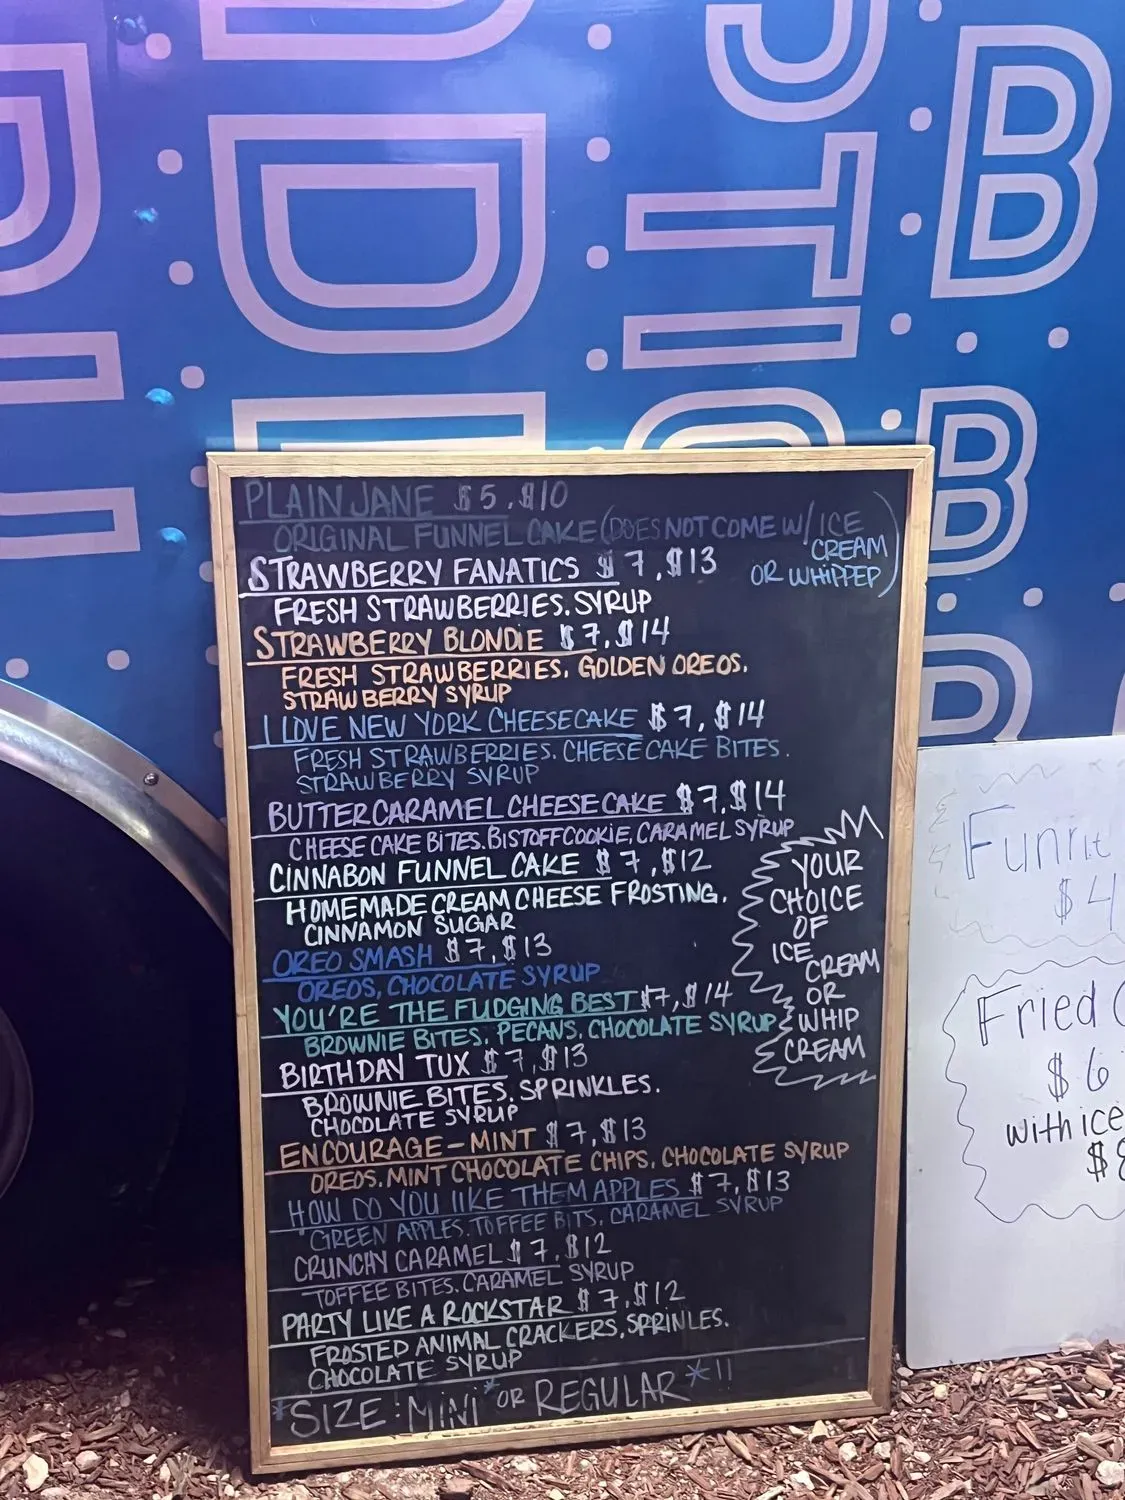 PLAIN JANE $5, $10
ORIGINAL FUNNEL CAKE (DOES NOT COME W/ ICE
CREAM
OR WHIPPED)
STRAWBERRY FANATICS $7, $13
FRESH STRAWBERRIES. SYRUP
STRAWBERRY BLONDIE $7, $14
FRESH STRAWBERRIES. GOLDEN OREOS.
STRAWBERRY SYRUP
I LOVE NEW YORK CHEESECAKE $7, $14
FRESH STRAWBERRIES. CHEESECAKE BITES.
STRAWBERRY SYRUP
BUTTER CARAMEL CHEESECAKE $7, $14
CHEESE CAKE BITES. BISTOFF COOKIE, CARAMEL SYRUP
CINNABON FUNNEL CAKE $7, $12
HOMEMADE CREAM CHEESE FROSTING.
CINNAMON SUGAR
OREO SMASH $7, $13
OREOS, CHOCOLATE SYRUP
YOU'RE THE FUDGING BEST $7, $14
BROWNIE BITES. PECANS. CHOCOLATE SYRUP
BIRTHDAY TUX $7, $13
BROWNIE BITES. SPRINKLES.
CHOCOLATE SYRUP
ENCOURAGE-MINT $7, $13
OREOS. MINT CHOCOLATE CHIPS. CHOCOLATE SYRUP
HOW DO YOU LIKE THEM APPLES $7, $13
GREEN APPLES. TOFFEE BITS. CARAMEL SYRUP
CRUNCHY CARAMEL $7, $12
TOFFEE BITES. CARAMEL SYRUP
PARTY LIKE A ROCKSTAR $7, $12
FROSTED ANIMAL CRACKERS, SPRINLES.
CHOCOLATE SYRUP
*SIZE: MINI* OR REGULAR*!!
YOUR
CHOICE
OF
ICE
CREAM
OR
WHIP
CREAM
$4
Fried
$6
with ice